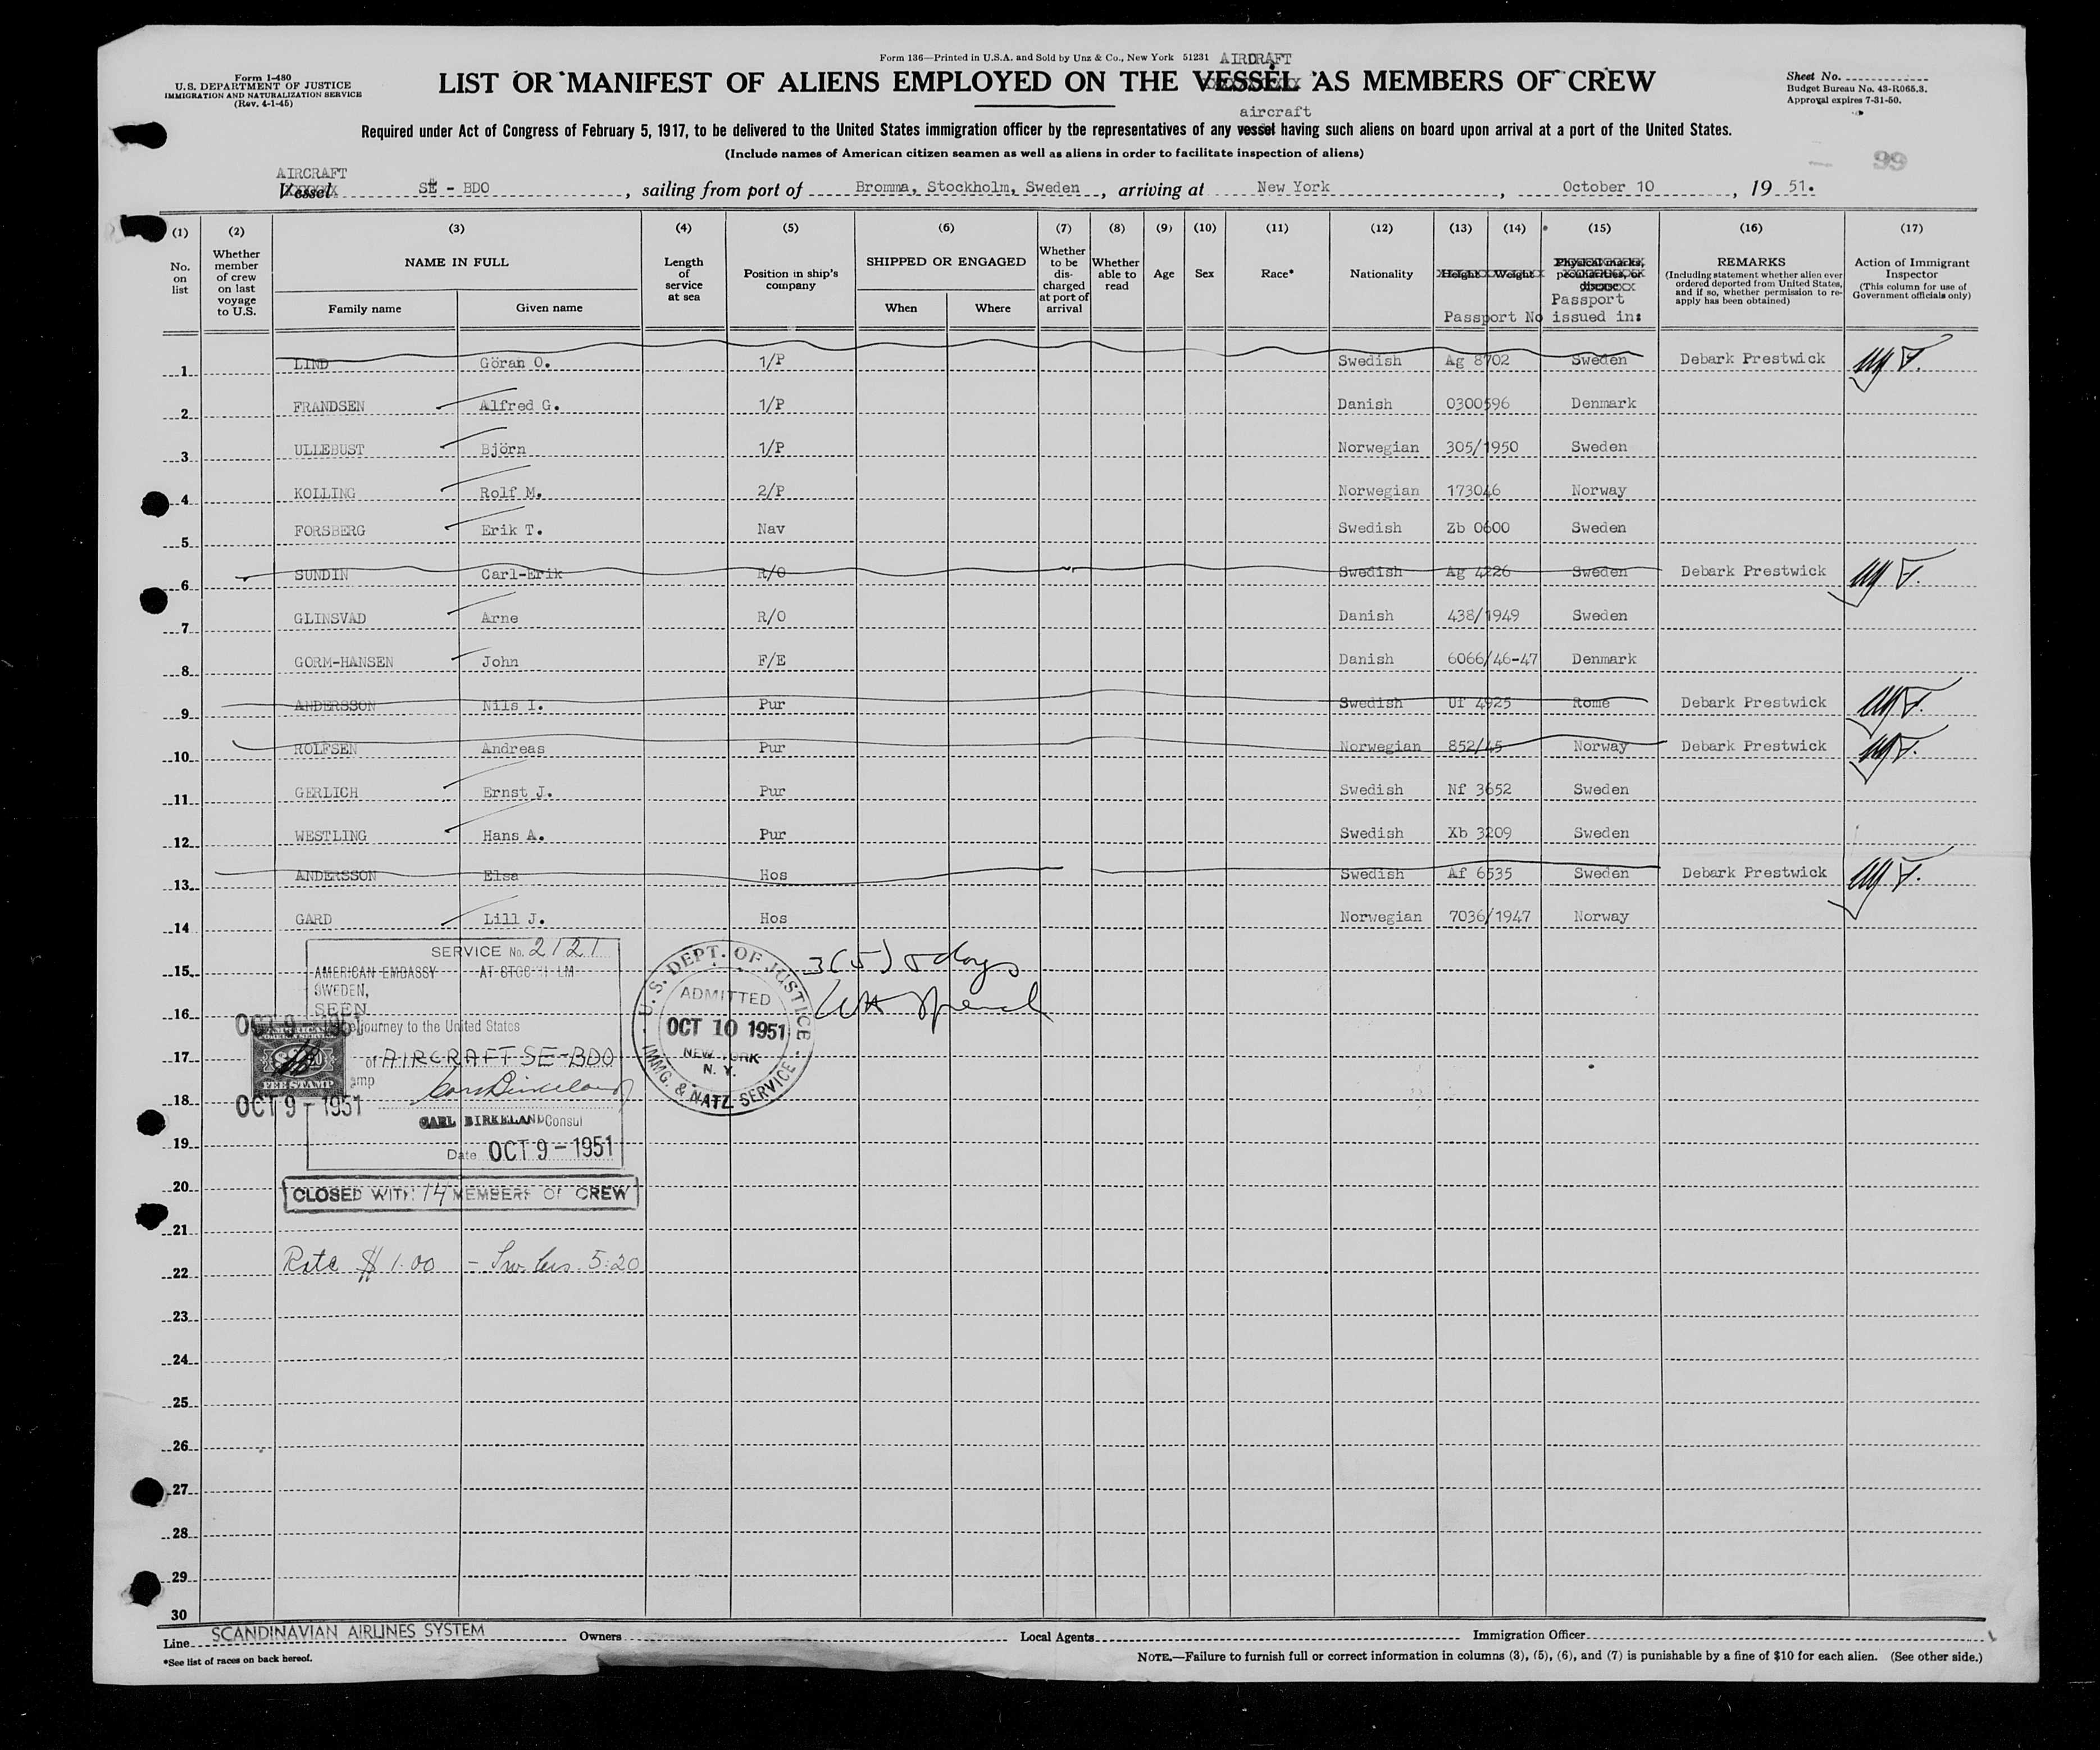 Form 136—Printed in U.S.A. and Sold by Unz & Co., New York 51231
AIRCRAFT
Form I-480
U.S. DEPARTMENT OF JUSTICE
IMMIGRATION AND NATURALIZATION SERVICE
(Rev. 4-1-45)
LIST OR MANIFEST OF ALIENS EMPLOYED ON THE VESSEL AS MEMBERS OF CREW
Sheet No.
Budget Bureau No. 43-R065.3.
Approval expires 7-31-50.
aircraft
Required under Act of Congress of February 5, 1917, to be delivered to the United States immigration officer by the representatives of any vessel having such aliens on board upon arrival at a port of the United States.
(Include names of American citizen seamen as well as aliens in order to facilitate inspection of aliens)
99
AIRCRAFT
Vessel SE - BDO, sailing from port of Bromma, Stockholm, Sweden, arriving at New York, October 10, 19 51.
(1) (2) (3) (4) (5) (6) (7) (8) (9) (10) (11) (12) (13) (14) (15) (16) (17)
No. on list
Whether member of crew on last voyage to U.S.
NAME IN FULL
Family name
Given name
Length of service at sea
Position in ship's company
SHIPPED OR ENGAGED
When
Where
Whether to be discharged at port of arrival
Whether able to read
Age
Sex
Race*
Nationality
Height
Weight
Passport No
Physical marks, peculiarities, or disease
Passport issued in:
REMARKS
(Including statement whether alien ever ordered deported from United States, and if so, whether permission to re-apply has been obtained)
Action of Immigrant Inspector
(This column for use of Government officials only)
1 LIND Göran O. 1/P Swedish Ag 8702 Sweden Debark Prestwick
2 FRANDSEN Alfred G. 1/P Danish 0300596 Denmark
3 ULLEBUST Björn 1/P Norwegian 305/1950 Sweden
4 KOLLING Rolf M. 2/P Norwegian 173046 Norway
5 FORSBERG Erik T. Nav Swedish Zb 0600 Sweden
6 SUNDIN Carl-Erik R/O Swedish Ag 4226 Sweden Debark Prestwick
7 GLINSVAD Arne R/O Danish 438/1949 Sweden
8 GORM-HANSEN John F/E Danish 6066/46-47 Denmark
9 ANDERSSON Nils I. Pur Swedish Uf 4925 Rome Debark Prestwick
10 ROLFSEN Andreas Pur Norwegian 852/45 Norway Debark Prestwick
11 GERLICH Ernst J. Pur Swedish Nf 3652 Sweden
12 WESTLING Hans A. Pur Swedish Xb 3209 Sweden
13 ANDERSSON Elsa Hos Swedish Af 6535 Sweden Debark Prestwick
14 GARD Lill J. Hos Norwegian 7036/1947 Norway
SERVICE No. 2121
AMERICAN EMBASSY AT STOCKHOLM
SWEDEN,
SEEN
journey to the United States
of AIRCRAFT SE-BDO
OCT 9 - 1951
FEE STAMP
OCT 9 - 1951
CARL BIRKELAND Consul
Date OCT 9 - 1951
U.S. DEPT. OF JUSTICE
ADMITTED
OCT 10 1951
NEW YORK
N. Y.
IMMG. & NATZ SERVICE
3(5) 5 days
15
16
17
18
19
20
CLOSED WITH 14 MEMBERS OF CREW
21
22
Rate $ 1.00 – Sw. 5:20
23
24
25
26
27
28
29
30
Line SCANDINAVIAN AIRLINES SYSTEM Owners Local Agents Immigration Officer
*See list of races on back hereof.
NOTE.—Failure to furnish full or correct information in columns (3), (5), (6), and (7) is punishable by a fine of $10 for each alien. (See other side.)